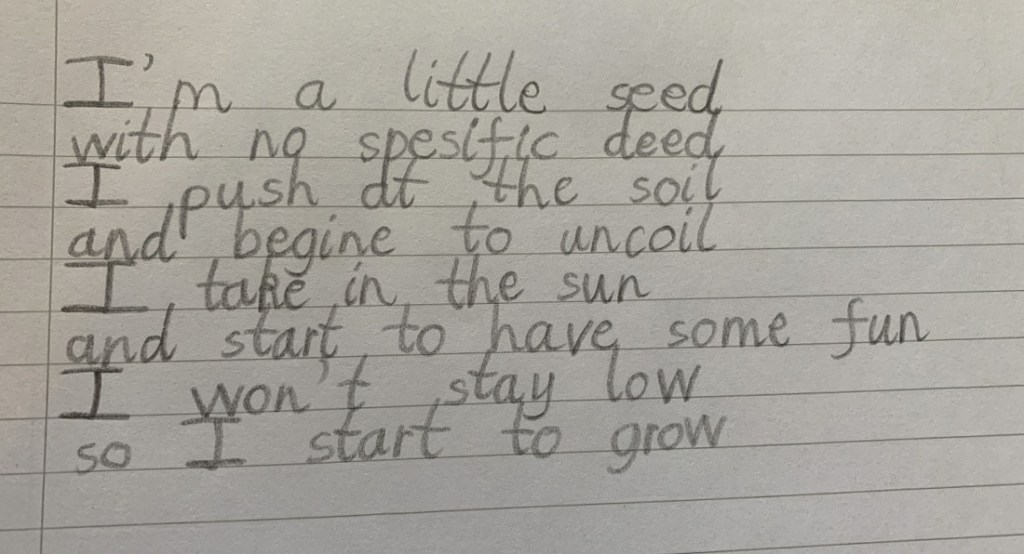 I'm a little seed
with no spesific deed
I push at the soil
and begine to uncoil
I take in the sun
and start to have some fun
I won't stay low
so I start to grow